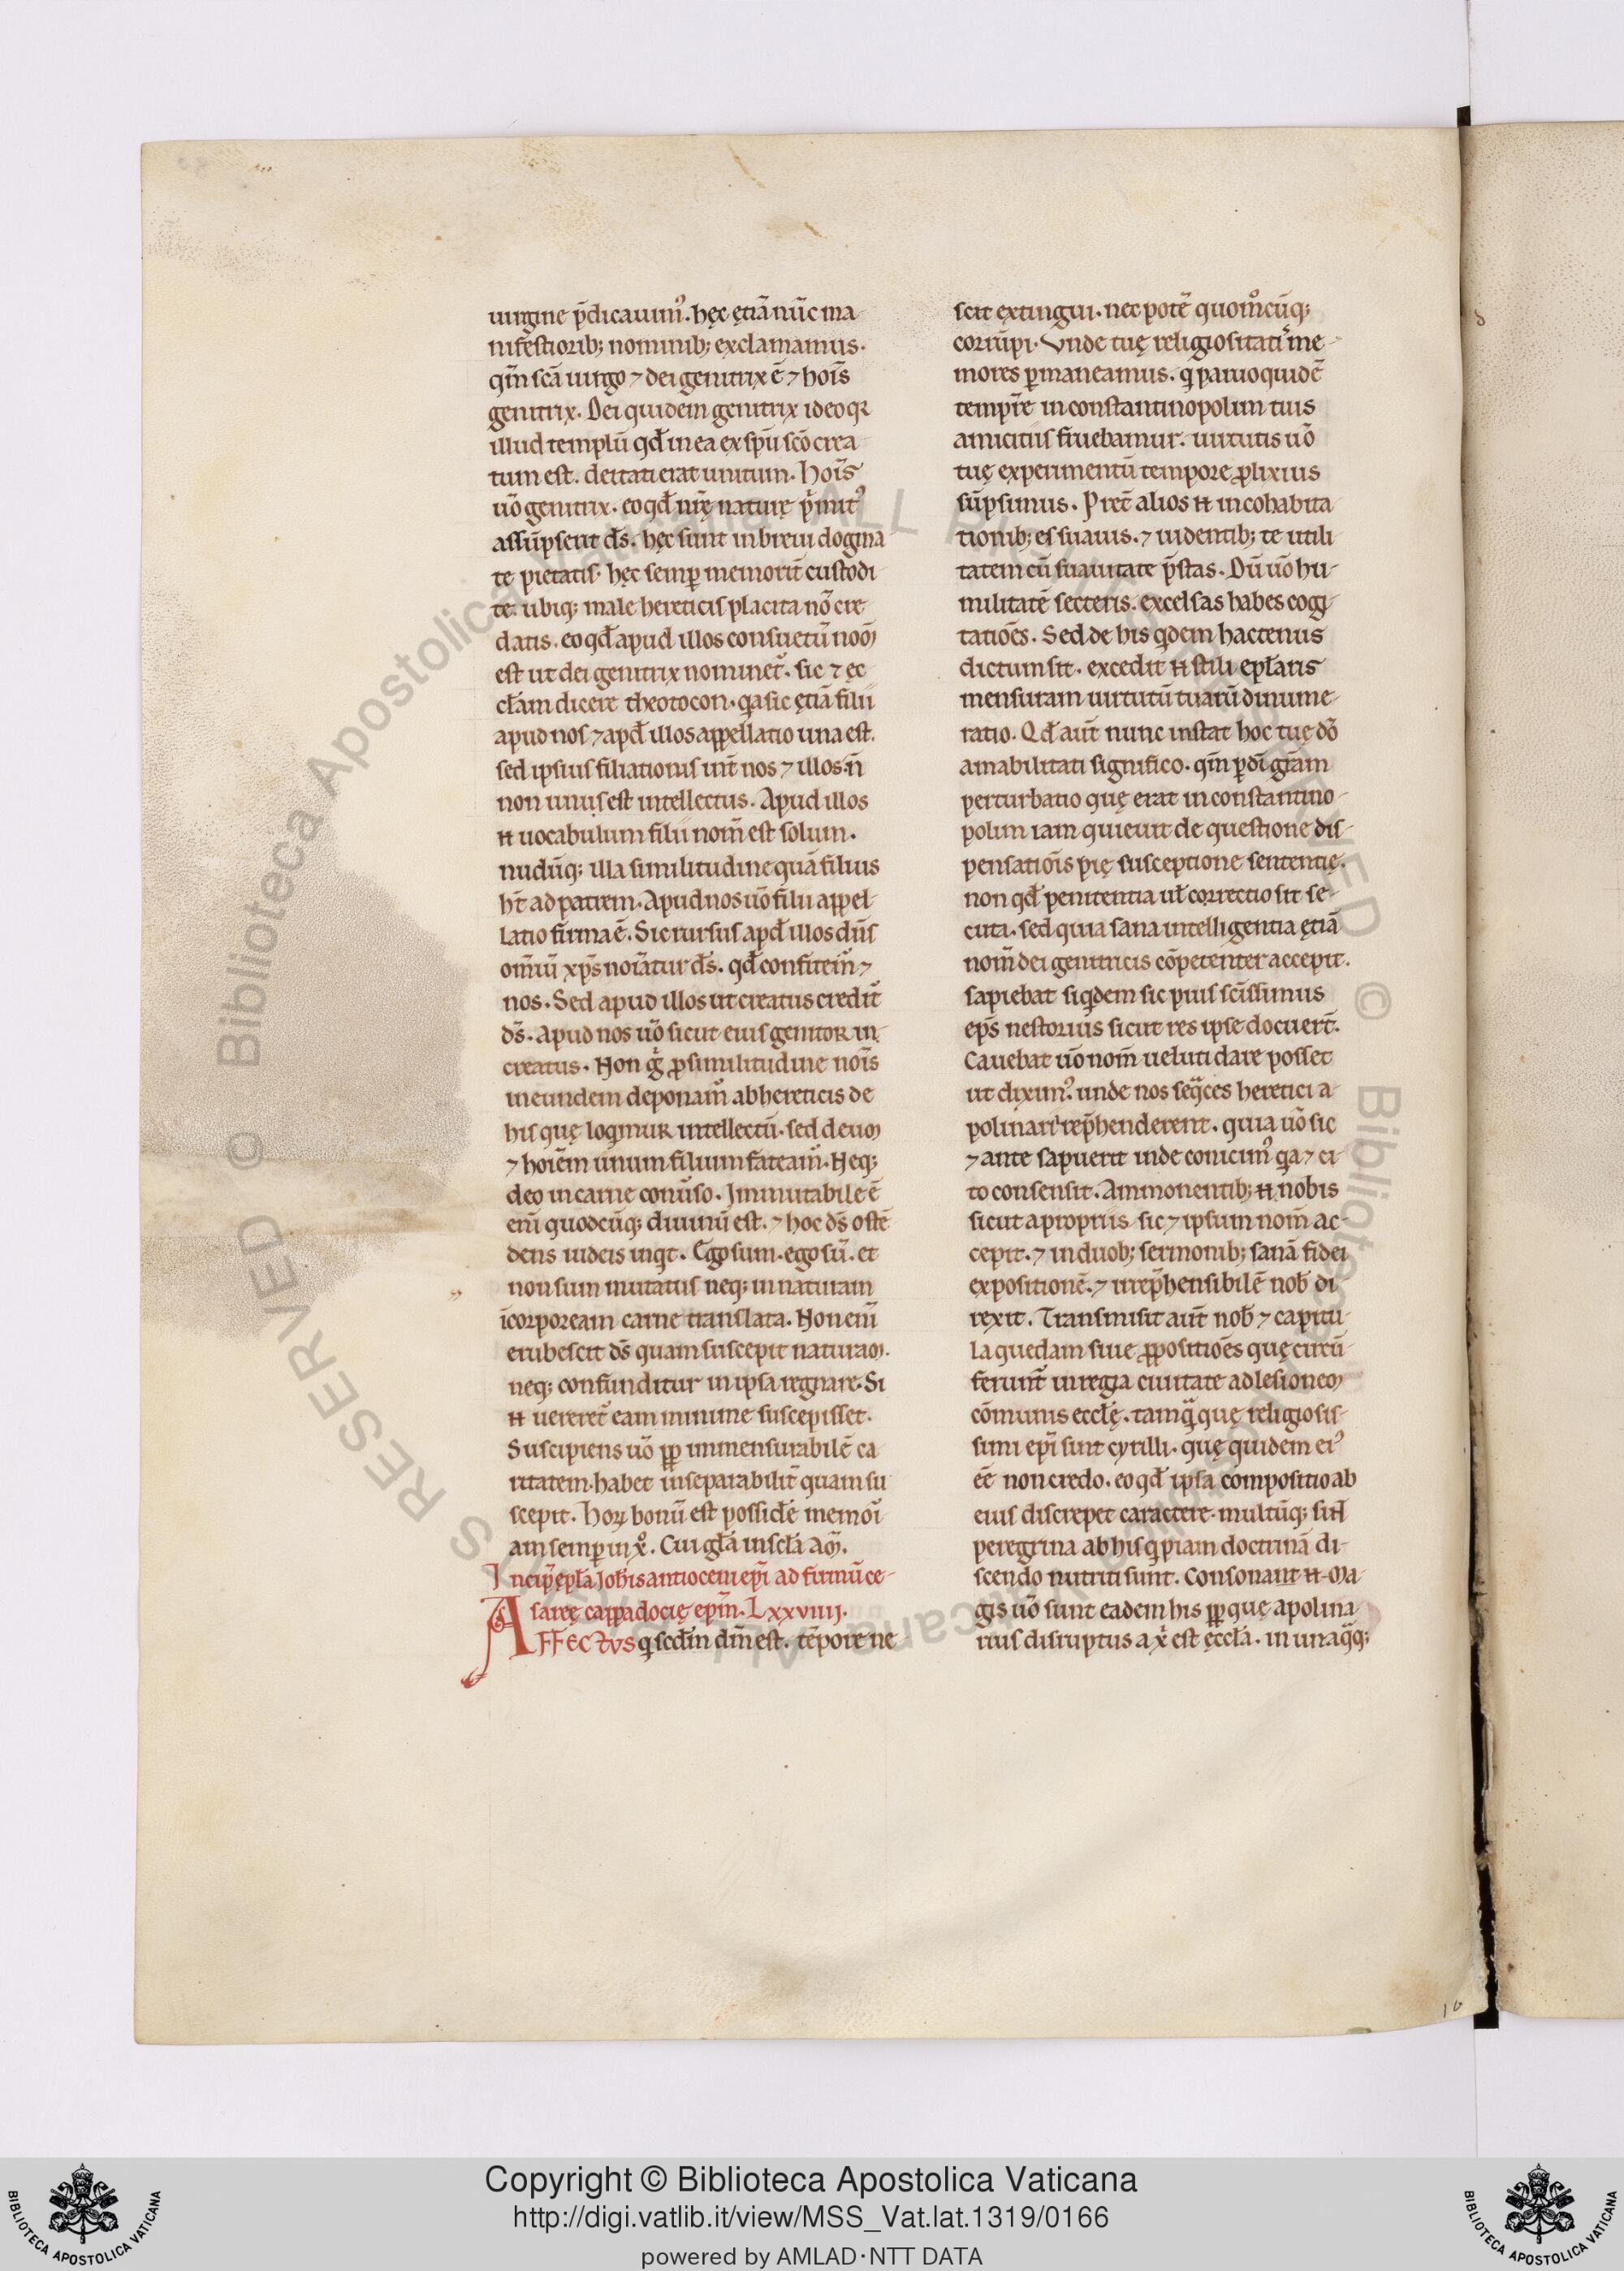 uirgine p̄dicauim᾽. hęc ętiā nūc ma-
nifestiorib; nominib; exclamamus.
qm̄ scā uirgo ⁊ dei genitrix ē ⁊ hoīs
genitrix. Dei quidem genitrix ideo qr
illud templū qđ in ea ex spū scō crea-
tum est. deitati erat unitum. Hoīs
uō genitrix. eo qđ nr̄ę naturę p̄mit᾽
assūpserit ds̄. hęc sunt in breui dogma
te pietatis. hęc semꝑ memorit̄ custodi-
te. ubiq; male hereticis placita nō cre-
datis. eo qđ apud illos consuetū noō
est ut dei genitrix nominet᾽. sic ⁊ ec-
cłam dicere theotocon. q̄a sic ętiā filii
apud nos ⁊ apđ illos appellatio una est.
sed ipsius filiationis int̄ nos ⁊ illos n̄
non unus est intellectus. Apud illos
n uocabulum filii nom̄ est solum.
nudūq; illa similitudine quā filius
ht̄ ad patrem. Apud nos uō filii appel-
latio firma ē. Sic rursus apđ illos dn̄s
om̄iū xp̄s noīatur ds̄. qđ confitem᾽ ⁊
nos. Sed apud illos ut creatus credit᾽
ds̄. Apud nos uō sicut eius genitor in-
creatus. Non g̊ ꝓ similitudine noīs
in eundem deponam᾽ ab hereticis de
his quę loqimur intellectū. sed deum
⁊ hoiēm unum filium fateam᾽. Neq;
deo in carne conūso. Immutabile ē
enī quodcūq; diuinū est. ⁊ hoc ds̄ ostē-
dens iudeis inqt. Ego sum. ego sū. et
non sum mutatus neq; in naturam
īcorpoream carne translata. Non enī
erubescit ds̄ quam suscepit naturam.
neq; confunditur in ipsa regnare. Si
n uereret᾽ eam minime suscepisset.
Suscipiens uō ꝓp immensurabilē ca-
ritatem. habet inseparabilit̄ quam su-
scepit. Hoꝝ bonū est possidē memori-
am semꝑ in xp̄o. Cui głā in scła Am̄.
Incip̄ ępła Joh̄is antioceni ep̄i ad firmū ce-
saręę cappadocię ep̄m. Lxxviiij.
AFFECTVS q̄ scđm dm̄ est. tēpore ne-
scit extingui. nec potē quom̊cūq;
corrūpi. Vnde tuę religiositati me-
mores ꝑmaneamus. q̄ paruo quidē
tempr̄e in constantinopolim tuis
amicitiis fruebamur. uirtutis uō
tuę experimentū tempore ꝓlixius
sūpsimus. P̄ret̄ alios n in cohabita
tionib; es suauis. ⁊ uidentib; te utili
tatem cū suauitate p̄stas. Dū uō hu-
militatē secteris. excelsas habes cogi-
tatiōes. Sed de his qdem hactenus
dictum sit. excedit n stili epłaris
mensuram uirtutū tuarū dinume-
ratio. Qđ aut̄ nunc instat hoc tuę dō
amabilitati significo. qm̄ ꝑ dī grām
perturbatio quę erat in constantino-
polim iam quieuit de questione dis-
pensatiōis pię susceptione sententię.
non qđ penitentia uł correctio sit se-
cuta. sed quia sana intelligentia ętiā
nom̄ dei genitricis cōpetenter accepit.
sapiebat siqdem sic pius scīssimus
ep̄s nestorius sicut res ipse docuert̄.
Cauebat uō nom̄ ueluti dare posset
ut dixim᾽. unde nos seq̄ces heretici a-
polinarii rep̄henderent. quia uō sic
⁊ ante sapuerit inde conicim᾽ q̄a ⁊ ci-
to consensit. Ammonentib; n nobis
sicut a propriis sic ⁊ ipsum nom̄ ac-
cepit. ⁊ in duob; sermonib; sanā fidei
expositionē. ⁊ irrep̄hensibilē nob̄ di-
rexit. Transmisit aut̄ nob̄ ⁊ capitu-
la quedam siue ꝓpositiōes quę circū-
ferunt᾽ in regia ciuitate ad lesionem
cōmunis eccłę. tamq̄ quę religiosis-
simi ep̄i sint cyrilli. quę quidem ei᾽
eē non credo. eo qđ ipsa compositio ab
eius discrepet caractere. multūq; sint
peregrina ab his q̄ piam doctrinā di-
scendo nutriti sunt. Consonant n. Ma-
gis uō sunt eadem his ꝓp que apolina-
rius disruptus a xp̄i est eccła. in unaq̄q;
Copyright © Biblioteca Apostolica Vaticana
http://digi.vatlib.it/view/MSS_Vat.lat.1319/0166
powered by AMLAD·NTT DATA
BIBLIOTECA APOSTOLICA VATICANA
BIBLIOTECA APOSTOLICA VATICANA